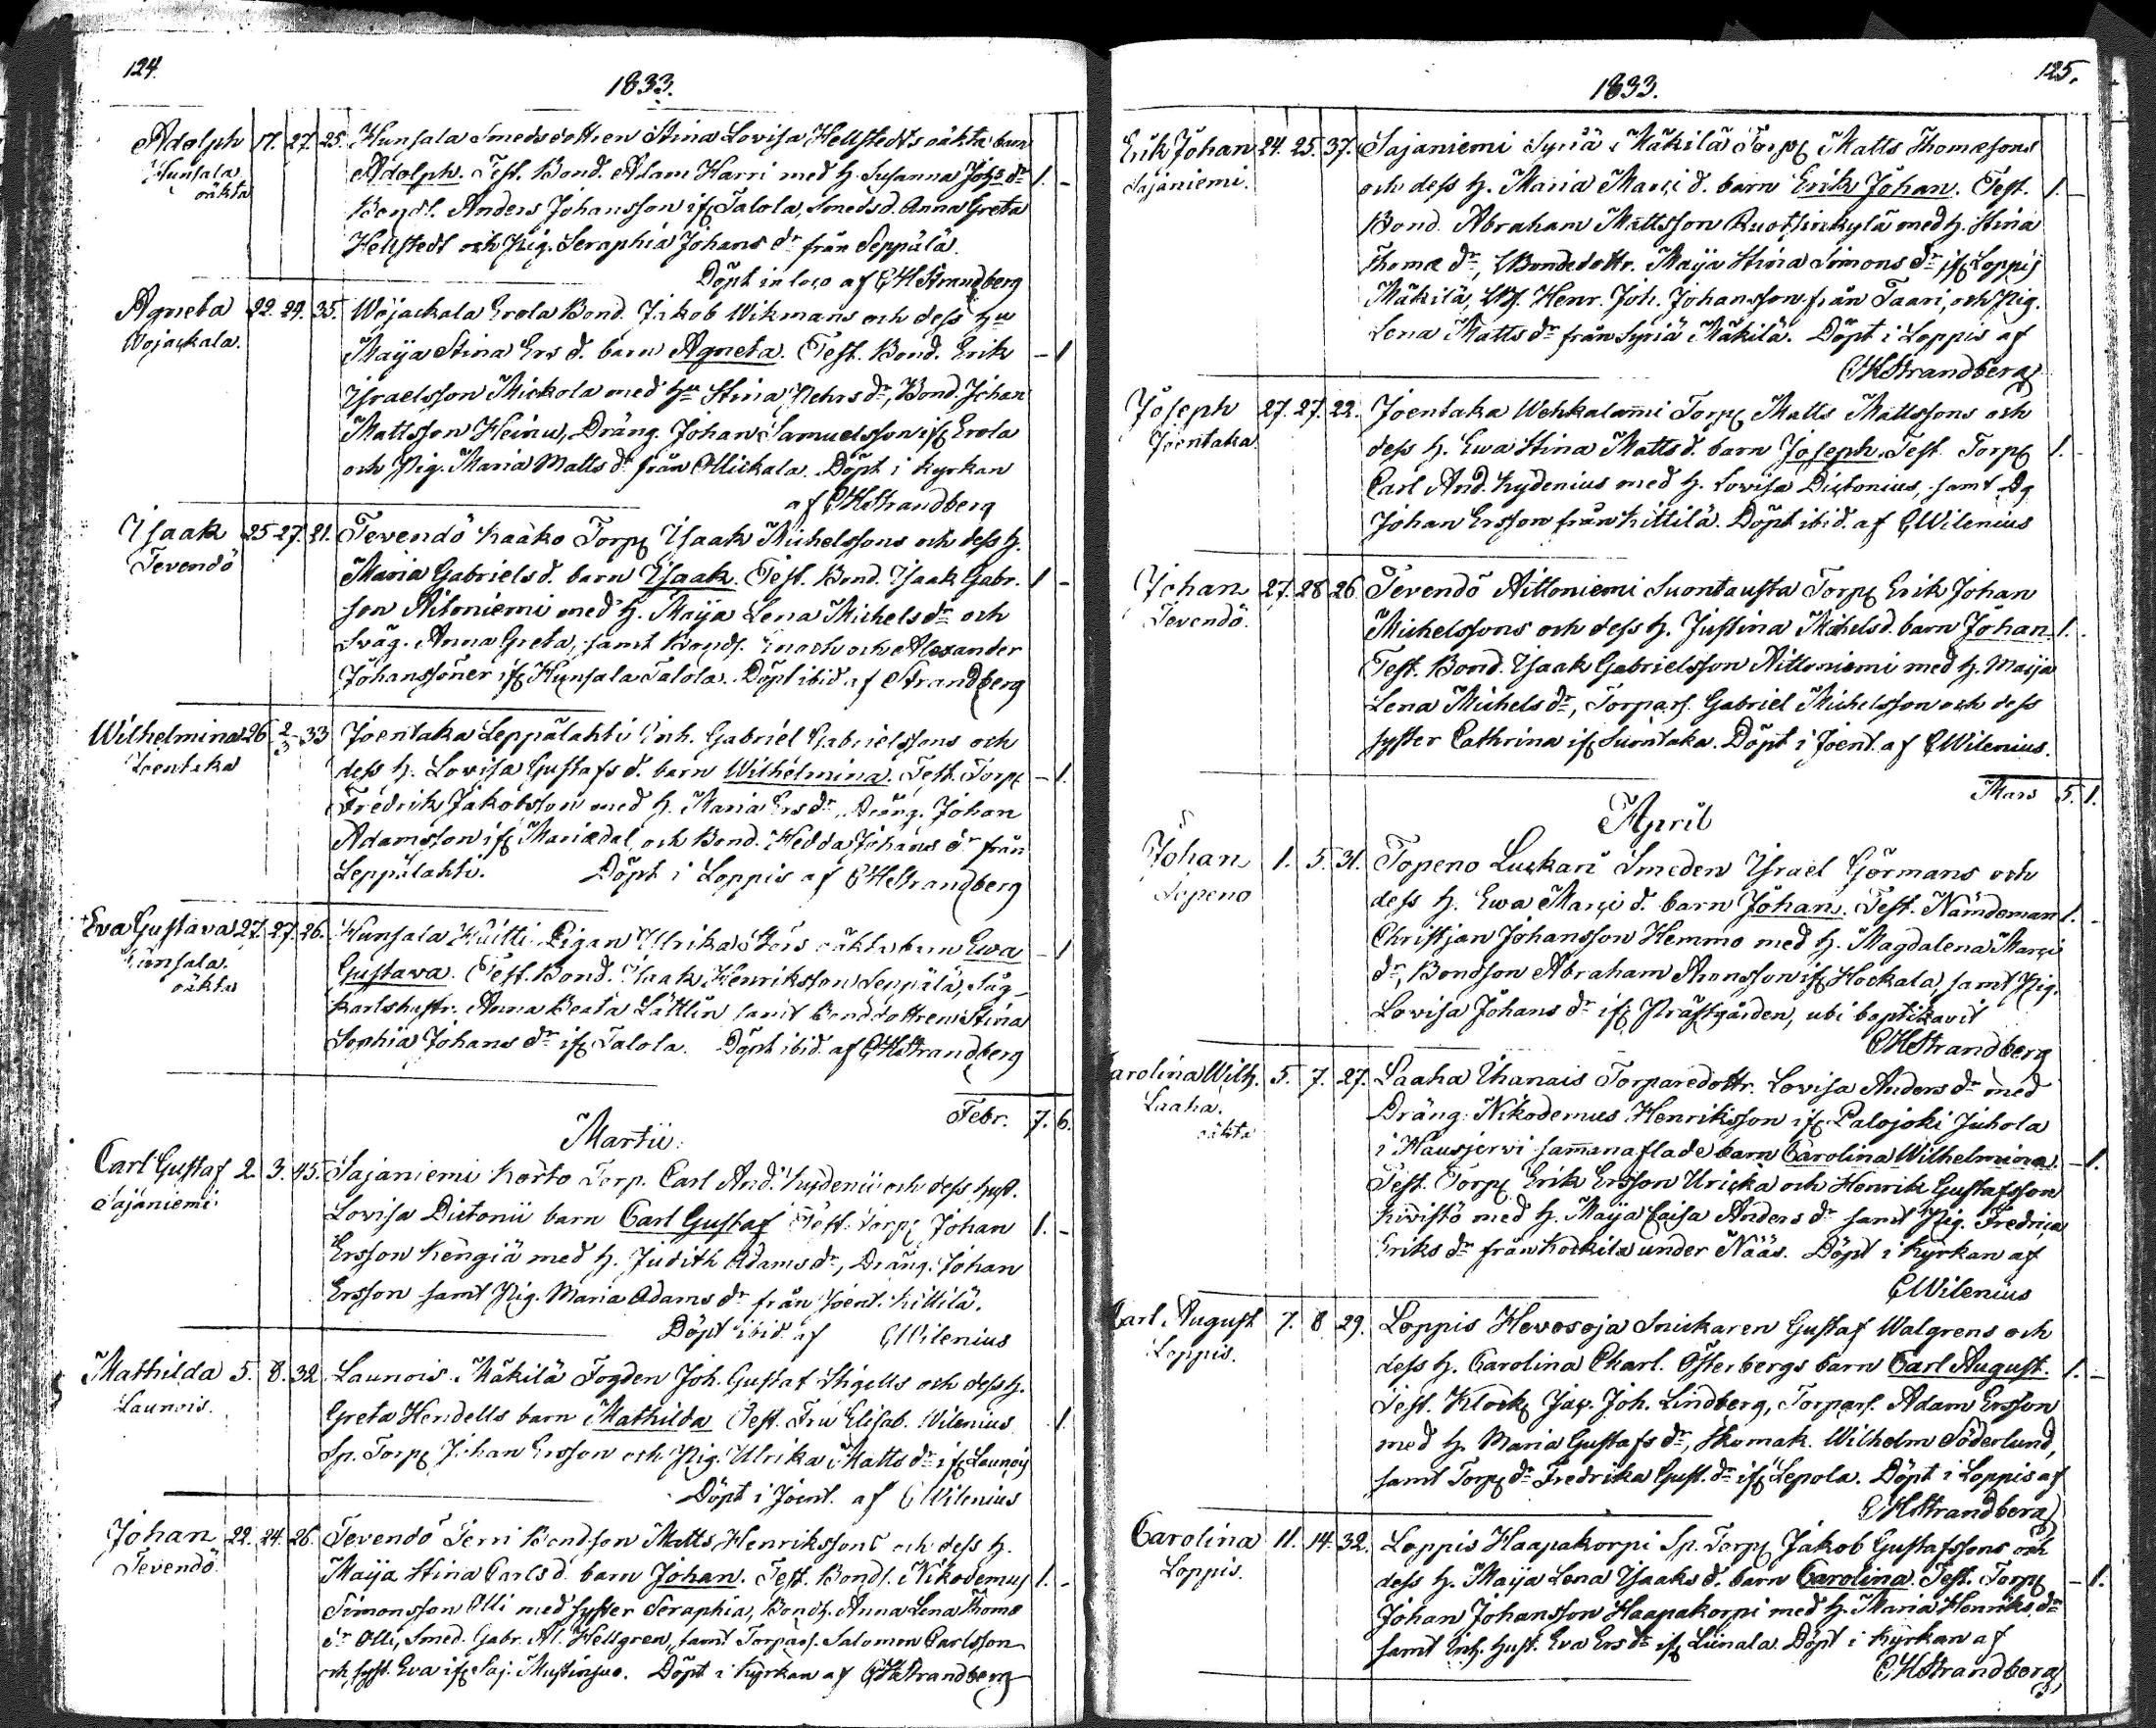 124.
1833.
Adolph 17. 27. 25. Hunsala Smedsdottren Stina Lovisa Hellstedts oäkta barn
Hunsala Adolph. Test. Bond. Adam Harri med h. Susanna Johs dr 1. -
oäkta Bonds. Anders Johansson if Talola, Smedsd. Anna Greta
Hellstedt och Pig. Seraphia Johans dr från Seppälä.
Döpt in loco af CHStrandberg
Agneta 22. 24. 35. Wojackala Erola Bond. Jakob Wikmans och dess hu
Wojackala. Maija Stina Ers d. barn Agneta. Test. Bond. Erik - 1
Israelsson Mickola med hu Stina Pehrs dr, Bond. Johan
Mattsson Heinu, Dräng. Johan Samuelsson if Erola
och Pig. Maria Matts dr från Mickala. Döpt i kyrkan
af CHStrandberg
Isaak 25 27. 21. Tevendö Kaako Torp Isaak Michelssons och dess h.
Tevendö Maria Gabriels d. barn Isaak. Test. Bond. Isaak Gabr. 1 -
son Aitoniemi med h. Maija Lena Michels dr och
Sväg. Anna Greta, samt Bonds. Enoch och Alexander
Johanssöner if Hunsala Talola. Döpt ibid af Strandberg
Wilhelmina 26 2/3 33 Joentaka Leppälahti Inh. Gabriel Gabrielssons och
Joentaka dess h. Lovisa Gustafs d. barn Wilhelmina. Test. Torp - 1.
Fredrik Jakobsson med h. Maria Ers dr, Dräng. Johan
Adamsson if Mariedal, och Bond. Hedda Johans dr från
Leppälahti. Döpt i Loppis af CHStrandberg
Eva Gustava 27. 27. 26. Hunsala Huitti Pigan Ulrika oäkta barn Ewa - 1
Hunsala. Gustava. Test. Bond. Isaak Henriksson Seppälä, Såg-
oäkta karlshustr. Anna Beata Lättlin samt Bonddottren Stina
Sophia Johans dr if Talola. Döpt ibid. af CHStrandberg
Febr. 7. 6.
Martii.
Carl Gustaf 2. 3. 45. Sajaniemi Korto Torp. Carl And. Kydenii och dess hust.
Sajaniemi. Lovisa Dictonii barn Carl Gustaf Test. Torp Johan 1. -
Ersson Kengiä med h. Judith Adams dr, Dräng. Johan
Ersson samt Pig. Maria Adams dr från Joent. Kittilä.
Döpt ibid. af CWilenius
Mathilda 5. 8. 32 Launois Mäkilä Fogden Joh. Gustaf Stigells och dess h.
Launois. Greta Hendells barn Mathilda Test. Fru Elisab. Wilenius 1.
Sp. Torp Johan Ersson och Pig. Ulrika Matts dr if Launois
Döpt i Joent. af CWilenius
Johan 22. 24. 26. Tevendö Jerri Bondson Matts Henrikssons och dess h.
Tevendö. Maija Stina Carls d. barn Johan. Test. Bonds. Nikodemus 1. -
Simonsson Olli med syster Seraphia, Bondh. Anna Lena Thomæ
dr Olli, Smed. Gabr. Al. Hellgren, samt Torpars. Salomon Carlsson
och syst. Eva if Saj. Mustinsuo. Döpt i kyrkan af CHStrandberg
125.
1833.
Erik Johan 24. 25. 37. Sajaniemi Syriä Mäkilä Torp Matts Thomæsons
Sajaniemi. och dess h. Maria Marci d. barn Erik Johan. Test. 1. -
Bond. Abraham Mattsson Ruotsinkylä med h. Stina
Thomæ dr, Bondedottr. Maija Stina Simons dr if Loppis
Mäkilä, Henr. Joh. Johansson från Taari, och Pig.
Lena Matts dr från Syriä Mäkilä. Döpt i Loppis af
CHStrandberg
Joseph 27. 27. 22. Joentaka Wehkalammi Torp Matts Mattssons och
Joentaka dess h. Ewa Stina Matts d. barn Joseph. Test. Torp 1. -
Carl And. Kydenius med h. Lovisa Dictonius, samt Dg
Johan Ersson från Kittilä. Döpt ibid. af CWilenius
Johan 27. 28 26 Tevendö Aittoniemi Suontausta Torp Erik Johan
Tevendö. Michelssons och dess h. Justina Michels d. barn Johan 1. -
Test. Bond. Isaak Gabrielsson Aittoniemi med h. Maija
Lena Michels dr, Torpars. Gabriel Michelsson och dess
syster Cathrina if Suontaka. Döpt i Joent. af CWilenius.
Mars 5. 1.
April
Johan 1. 5. 31. Topeno Luckari Smeden Israel Görmans och
Topeno dess h. Ewa Marci d. barn Johan. Test. Nämdeman 1. -
Christjan Johansson Hemmo med h. Magdalena Marci
dr, Bondson Abraham Aronsson if Hockala, samt Pig.
Lovisa Johans dr if Prästgården, ubi baptizavit
CHStrandberg
Carolina Wilh. 5. 7. 27. Laaha Uhanais Torparedottr. Lovisa Anders dr med
Laaha. Dräng. Nikodemus Henriksson if Palojoki Juhola
oäkta i Hausjerwi sammanaflade barn Carolina Wilhelmina. - 1.
Test. Torp Erik Ersson Uricka och Henrik Gustafsson
Kiwistö med h. Maija Caisa Anders dr samt Pig. Fredrica
Eriks dr från Kockila under Nääs. Döpt i kyrkan af
CWilenius
Carl August 7. 8 29. Loppis Hevosoja Snickaren Gustaf Walgrens och
Loppis. dess h. Carolina Charl. Österbergs barn Carl August. 1. -
Test. Klock Jac. Joh. Lindberg, Torpars. Adam Ersson
med h. Maria Gustafs dr, Skomak. Wilhelm Söderlund,
samt Torp dr Fredrika Gust. dr if Lepola. Döpt i Loppis af
CHStrandberg
Carolina 11. 14. 32. Loppis Haapakorpi Sp. Torp Jakob Gustafssons och
Loppis. dess h. Maija Lena Isaaks d. barn Carolina. Test. Torp - 1.
Johan Johansson Haapakorpi med h. Maria Henriks dr
samt Inh. hust. Eva Ers dr if Liinala. Döpt i kyrkan af
CHStrandberg